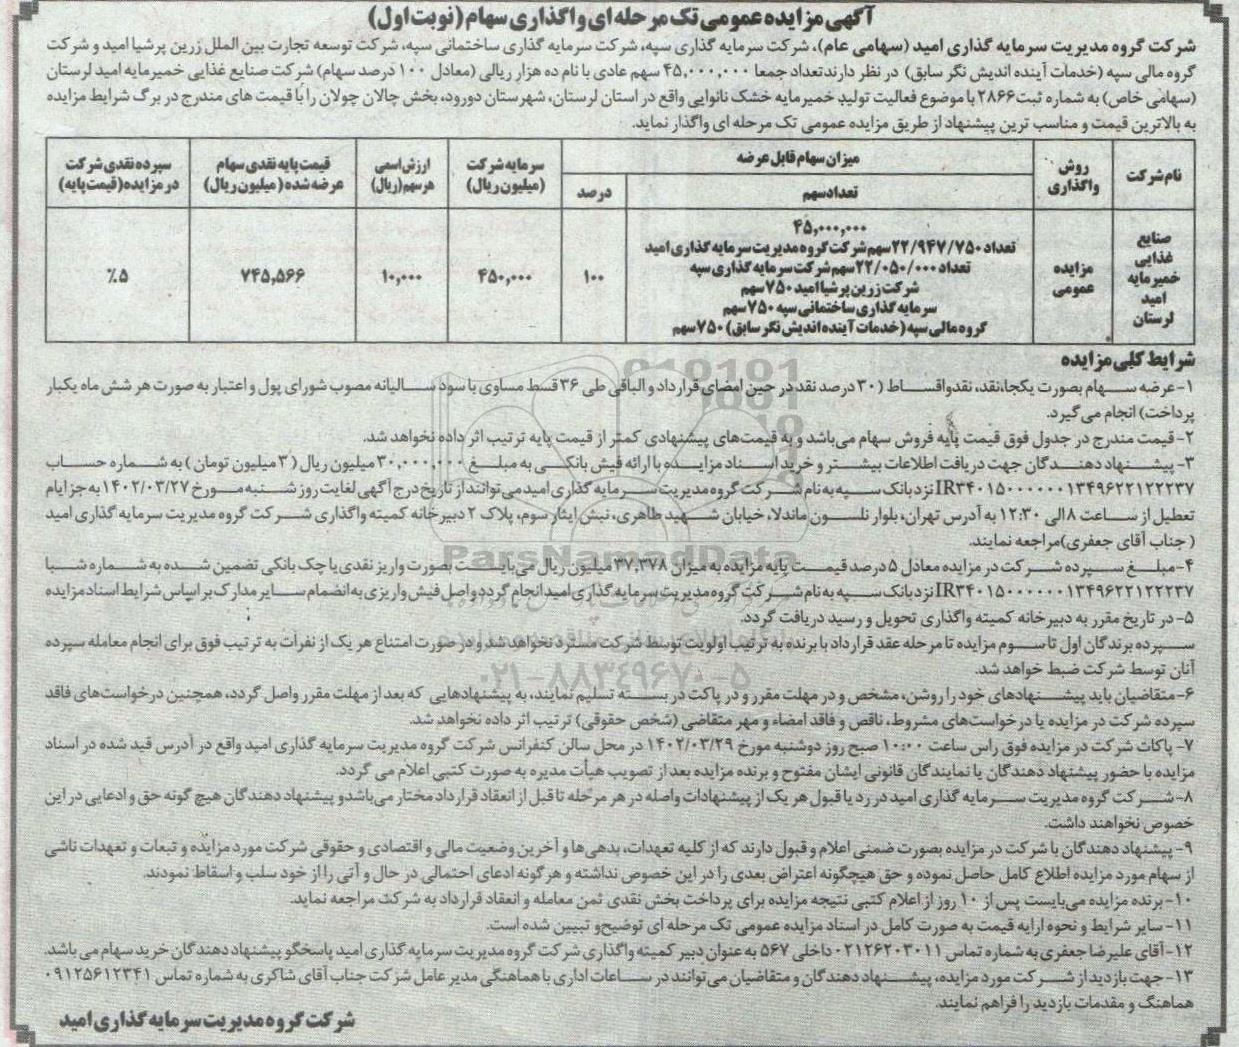 آگهی مزایده عمومی تک مرحله ای واگذاری سهام (نوبت اول)
شرکت گروه مدیریت سرمایه گذاری امید (سهامی عام)، شرکت سرمایه گذاری سپه، شرکت سرمایه گذاری ساختمانی سپه، شرکت توسعه تجارت بین الملل زرین پرشیا امید و شرکت
گروه مالی سپه (خدمات آینده اندیش نگر سابق) در نظر دارند تعداد جمعا ۴۵,۰۰۰,۰۰۰ سهم عادی با نام ده هزار ریالی (معادل ۱۰۰ درصد سهام) شرکت صنایع غذایی خمیرمایه امید لرستان
(سهامی خاص) به شماره ثبت ۲۸۶۶ با موضوع فعالیت تولید خمیرمایه خشک نانوایی واقع در استان لرستان، شهرستان دورود، بخش چالان چولان را با قیمت های مندرج در برگ شرایط مزایده
به بالاترین قیمت و مناسب ترین پیشنهاد از طریق مزایده عمومی تک مرحله ای واگذار نماید.
نام شرکت
روش واگذاری
میزان سهام قابل عرضه
تعداد سهم
درصد
سرمایه شرکت (میلیون ریال)
ارزش اسمی هر سهم (ریال)
قیمت پایه نقدی سهام عرضه شده (میلیون ریال)
سپرده نقدی شرکت در مزایده (قیمت پایه)
صنایع غذایی خمیرمایه امید لرستان
مزایده عمومی
۴۵,۰۰۰,۰۰۰
تعداد ۲۲/۹۴۷/۷۵۰ سهم شرکت گروه مدیریت سرمایه گذاری امید
تعداد ۲۲/۰۵۰/۰۰۰ سهم شرکت سرمایه گذاری سپه
شرکت زرین پرشیا امید ۷۵۰ سهم
سرمایه گذاری ساختمانی سپه ۷۵۰ سهم
گروه مالی سپه (خدمات آینده اندیش نگر سابق) ۷۵۰ سهم
۱۰۰
۴۵۰,۰۰۰
۱۰,۰۰۰
۷۴۵,۵۶۶
۵٪
شرایط کلی مزایده
۱- عرضه سهام بصورت یکجا، نقد، نقد و اقساط (۳۰ درصد نقد در حین امضای قرارداد و الباقی طی ۳۶ قسط مساوی با سود سالیانه مصوب شورای پول و اعتبار به صورت هر شش ماه یکبار
پرداخت) انجام می گیرد.
۲- قیمت مندرج در جدول فوق قیمت پایه فروش سهام می باشد و به قیمت های پیشنهادی کمتر از قیمت پایه ترتیب اثر داده نخواهد شد.
۳- پیشنهاد دهندگان جهت دریافت اطلاعات بیشتر و خرید اسناد مزایده با ارائه فیش بانکی به مبلغ ۳۰,۰۰۰,۰۰۰ میلیون ریال (۳ میلیون تومان) به شماره حساب
IR۳۴۰۱۵۰۰۰۰۰۰۱۳۴۹۶۲۲۱۲۲۲۳۷ نزد بانک سپه به نام شرکت گروه مدیریت سرمایه گذاری امید می توانند از تاریخ درج آگهی لغایت روز شنبه مورخ ۱۴۰۲/۰۳/۲۷ به جز ایام
تعطیل از ساعت ۸ الی ۱۲:۳۰ به آدرس تهران، بلوار نلسون ماندلا، خیابان شهید طاهری، نبش ایثار سوم، پلاک ۲ دبیرخانه کمیته واگذاری شرکت گروه مدیریت سرمایه گذاری امید
(جناب آقای جعفری) مراجعه نمایند.
۴- مبلغ سپرده شرکت در مزایده معادل ۵ درصد قیمت پایه مزایده به میزان ۳۷,۳۷۸ میلیون ریال می بایست بصورت واریز نقدی یا چک بانکی تضمین شده به شماره شبا
IR۳۴۰۱۵۰۰۰۰۰۰۱۳۴۹۶۲۲۱۲۲۲۳۷ نزد بانک سپه به نام شرکت گروه مدیریت سرمایه گذاری امید انجام گردد و اصل فیش واریزی به انضمام سایر مدارک بر اساس شرایط اسناد مزایده
۵- در تاریخ مقرر به دبیرخانه کمیته واگذاری تحویل و رسید دریافت گردد.
سپرده برندگان اول تا سوم مزایده تا مرحله عقد قرارداد با برنده به ترتیب اولویت توسط شرکت مسترد نخواهد شد و در صورت امتناع هر یک از نفرات به ترتیب فوق برای انجام معامله سپرده
آنان توسط شرکت ضبط خواهد شد.
۶- متقاضیان باید پیشنهادهای خود را روشن، مشخص و در مهلت مقرر و در پاکت در بسته تسلیم نمایند، به پیشنهادهایی که بعد از مهلت مقرر واصل گردد، همچنین درخواست های فاقد
سپرده شرکت در مزایده یا درخواست های مشروط، ناقص و فاقد امضاء و مهر متقاضی (شخص حقوقی) ترتیب اثر داده نخواهد شد.
۷- پاکات شرکت در مزایده فوق راس ساعت ۱۰:۰۰ صبح روز دوشنبه مورخ ۱۴۰۲/۰۳/۲۹ در محل سالن کنفرانس شرکت گروه مدیریت سرمایه گذاری امید واقع در آدرس قید شده در اسناد
مزایده با حضور پیشنهاد دهندگان یا نمایندگان قانونی ایشان مفتوح و برنده مزایده بعد از تصویب هیأت مدیره به صورت کتبی اعلام می گردد.
۸- شرکت گروه مدیریت سرمایه گذاری امید در رد یا قبول هر یک از پیشنهادات واصله در هر مرحله تا قبل از انعقاد قرارداد مختار می باشد و پیشنهاد دهندگان هیچ گونه حق و ادعایی در این
خصوص نخواهند داشت.
۹- پیشنهاد دهندگان با شرکت در مزایده بصورت ضمنی اعلام و قبول دارند که از کلیه تعهدات، بدهی ها و آخرین وضعیت مالی و اقتصادی و حقوقی شرکت مورد مزایده و تبعات و تعهدات ناشی
از سهام مورد مزایده اطلاع کامل حاصل نموده و حق هیچگونه اعتراض بعدی را در این خصوص نداشته و هرگونه ادعای احتمالی در حال و آتی را از خود سلب و اسقاط نمودند.
۱۰- برنده مزایده می بایست پس از ۱۰ روز از اعلام کتبی نتیجه مزایده برای پرداخت بخش نقدی ثمن معامله و انعقاد قرارداد به شرکت مراجعه نماید.
۱۱- سایر شرایط و نحوه ارایه قیمت به صورت کامل در اسناد مزایده عمومی تک مرحله ای توضیح و تبیین شده است.
۱۲- آقای علیرضا جعفری به شماره تماس ۰۲۱۲۶۲۰۳۰۱۱ داخلی ۵۶۷ به عنوان دبیر کمیته واگذاری شرکت گروه مدیریت سرمایه گذاری امید پاسخگو پیشنهاد دهندگان خرید سهام می باشد.
۱۳- جهت بازدید از شرکت مورد مزایده، پیشنهاد دهندگان و متقاضیان می توانند در ساعات اداری با هماهنگی مدیر عامل شرکت جناب آقای شاکری به شماره تماس ۰۹۱۲۵۶۱۲۳۴۱
هماهنگ و مقدمات بازدید را فراهم نمایند.
شرکت گروه مدیریت سرمایه گذاری امید
ParsNamadData
۰۲۱-۸۸۳۴۹۶۷۰-۵